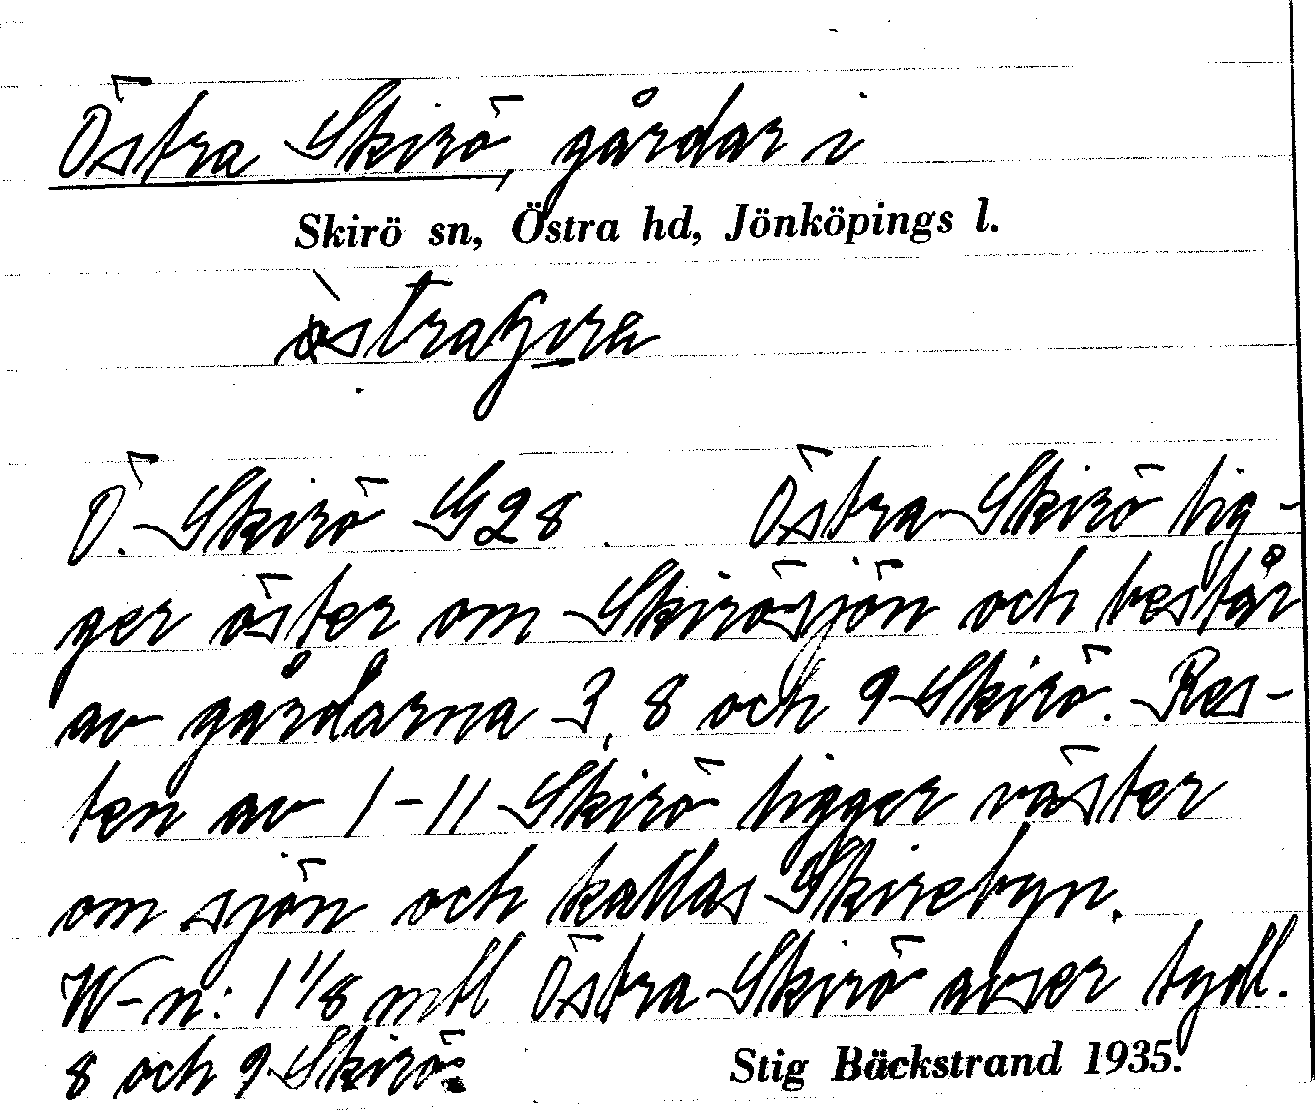 Östra Skirö, gårdar i
Skirö sn, Östra hd, Jönköpings l.
Ö. Skirö G28. Östra Skirö lig-
ger öster om Skirösjön och består
av gårdarna 3, 8 och 9 Skirö. Res-
ten av 1-11 Skirö ligger väster
om sjön och kallas Skirebyn.
W-n: 1 1/8 mtl Östra Skirö avser tydl.
8 och 9 Skirö.
Stig Bäckstrand 1935.